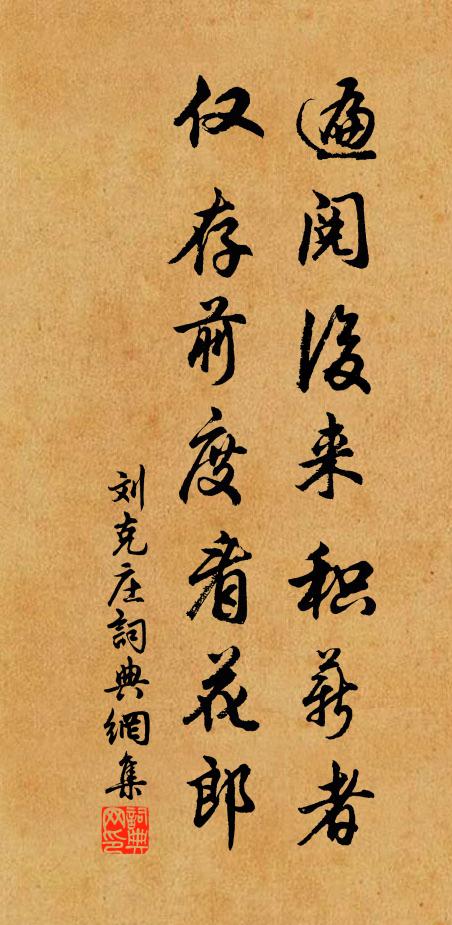 遍阅後来积薪者
仅存前度看花郎
刘克庄詞典網集
詞典网印